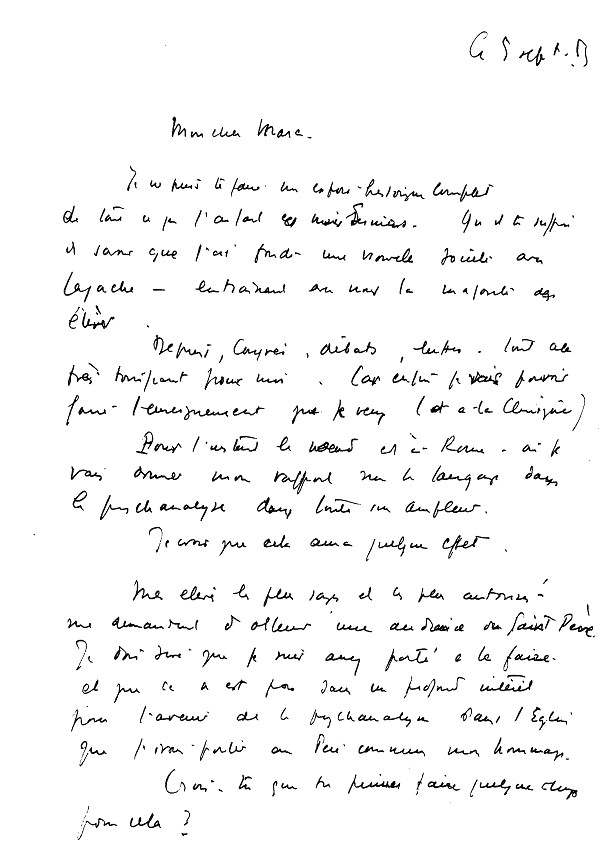 Ce 5 sept. 53
Mon cher Marc.
Je ne puis te faire un exposé historique complet
de tout ce qui s'est fait ces mois derniers. Qu'il te suffise
de savoir que j'ai fondé une nouvelle Société avec
Lagache – entraînant avec nous la majorité des
élèves.
Depuis, Congrès, débats, luttes. Tout cela
très tonifiant pour moi. Car enfin je vais pouvoir
faire l'enseignement que je veux (et à la Clinique)
Pour l'instant le nœud est à Rome où je
vais donner mon rapport sur le langage dans
la psychanalyse dans toute son ampleur.
Je crois que cela aura quelque effet.
Mes élèves les plus sages et les plus autorisés
me demandent d'obtenir une audience du Saint Père.
Je dois dire que je suis assez porté à le faire
et que ce n'est pas sans un profond intérêt
pour l'avenir de la psychanalyse dans l'Eglise
que j'irai porter au Père commun mon hommage.
Crois-tu que tu puisses faire quelque chose
pour cela ?